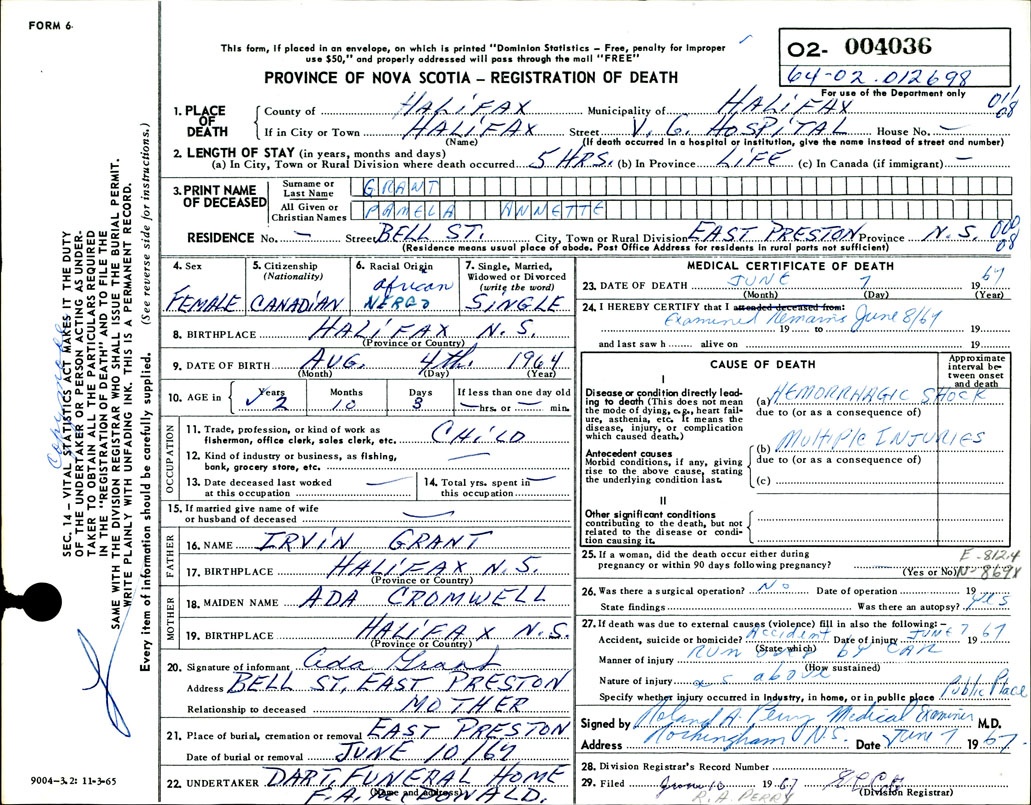 FORM 6
This form, if placed in an envelope, on which is printed "Dominion Statistics – Free, penalty for improper
use $50," and properly addressed will pass through the mail "FREE"
PROVINCE OF NOVA SCOTIA – REGISTRATION OF DEATH
02- 004036
64-02.012698
For use of the Department only
011
08
1. PLACE OF DEATH
County of HALIFAX Municipality of HALIFAX
If in City or Town HALIFAX Street V. G. HOSPITAL House No. —
(Name) (If death occurred in a hospital or institution, give the name instead of street and number)
2. LENGTH OF STAY (in years, months and days)
(a) In City, Town or Rural Division where death occurred 5 HRS. (b) In Province LIFE (c) In Canada (if immigrant) —
3. PRINT NAME OF DECEASED
Surname or Last Name GRANT
All Given or Christian Names PAMELA ANNETTE
RESIDENCE No. — Street BELL ST. City, Town or Rural Division EAST PRESTON Province N.S.
08
(Residence means usual place of abode. Post Office Address for residents in rural parts not sufficient)
4. Sex FEMALE
5. Citizenship (Nationality) CANADIAN
6. Racial Origin African NEGRO
7. Single, Married, Widowed or Divorced (write the word) SINGLE
8. BIRTHPLACE HALIFAX N.S.
(Province or Country)
9. DATE OF BIRTH AUG. 4th. 1964
(Month) (Day) (Year)
10. AGE in Years 2 Months 10 Days 3 If less than one day old — hrs. or — min.
OCCUPATION
11. Trade, profession, or kind of work as fisherman, office clerk, sales clerk, etc. CHILD
12. Kind of industry or business, as fishing, bank, grocery store, etc. —
13. Date deceased last worked at this occupation —
14. Total yrs. spent in this occupation —
15. If married give name of wife or husband of deceased —
FATHER
16. NAME IRVIN GRANT
17. BIRTHPLACE HALIFAX N.S.
(Province or Country)
MOTHER
18. MAIDEN NAME ADA CROMWELL
19. BIRTHPLACE HALIFAX N.S.
(Province or Country)
20. Signature of informant Ada Grant
Address BELL ST. EAST PRESTON
Relationship to deceased MOTHER
21. Place of burial, cremation or removal EAST PRESTON
Date of burial or removal JUNE 10/67
22. UNDERTAKER DART. FUNERAL HOME
(Name and address)
F.A. McDONALD.
MEDICAL CERTIFICATE OF DEATH
23. DATE OF DEATH JUNE 7 1967
(Month) (Day) (Year)
24. I HEREBY CERTIFY that I attended deceased from:
Examined Remains June 8/67
19 to 19
and last saw h alive on 19
CAUSE OF DEATH
Approximate interval between onset and death
I
Disease or condition directly leading to death (This does not mean the mode of dying, e.g., heart failure, asthenia, etc. It means the disease, injury, or complication which caused death.)
(a) HEMORRHAGIC SHOCK
due to (or as a consequence of)
Antecedent causes
Morbid conditions, if any, giving rise to the above cause, stating the underlying condition last.
(b) MULTIPLE INJURIES
due to (or as a consequence of)
(c)
II
Other significant conditions
contributing to the death, but not related to the disease or condition causing it.
25. If a woman, did the death occur either during pregnancy or within 90 days following pregnancy? (Yes or No)
E-812.4
N-869X
26. Was there a surgical operation? No Date of operation 19
State findings Was there an autopsy? Yes
27. If death was due to external causes (violence) fill in also the following:–
Accident, suicide or homicide? Accident Date of injury JUNE 7 1967
(State which)
Manner of injury RUN OVER BY CAR
(How sustained)
Nature of injury as above
Specify whether injury occurred in Industry, in home, or in public place Public Place
Signed by Roland A. Perry Medical Examiner M.D.
Address Rockingham N.S. Date June 7 1967.
28. Division Registrar's Record Number
29. Filed June 10 1967
(Division Registrar)
R.A. PERRY
SEC. 14 – VITAL STATISTICS ACT MAKES IT THE DUTY
OF THE UNDERTAKER OR PERSON ACTING AS UNDER-
TAKER TO OBTAIN ALL THE PARTICULARS REQUIRED
IN THE "REGISTRATION OF DEATH" AND TO FILE THE
SAME WITH THE DIVISION REGISTRAR WHO SHALL ISSUE THE BURIAL PERMIT.
WRITE PLAINLY WITH UNFADING INK. THIS IS A PERMANENT RECORD.
Every item of information should be carefully supplied. (See reverse side for instructions.)
9004-3.2: 11-3-65